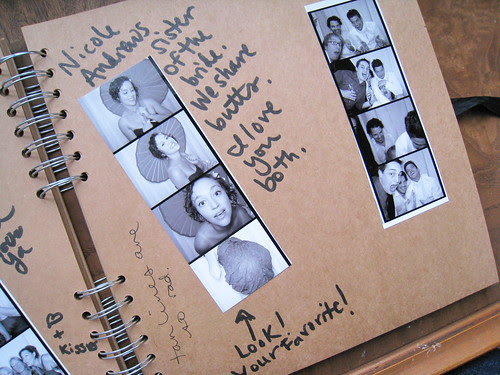 Nicole
Andrews
sister
of the
bride.
We share
butts.
I love
you
both.
tan lines are
so rad.
Look!
Your Favorite!
love
ya
+ B
Kisses